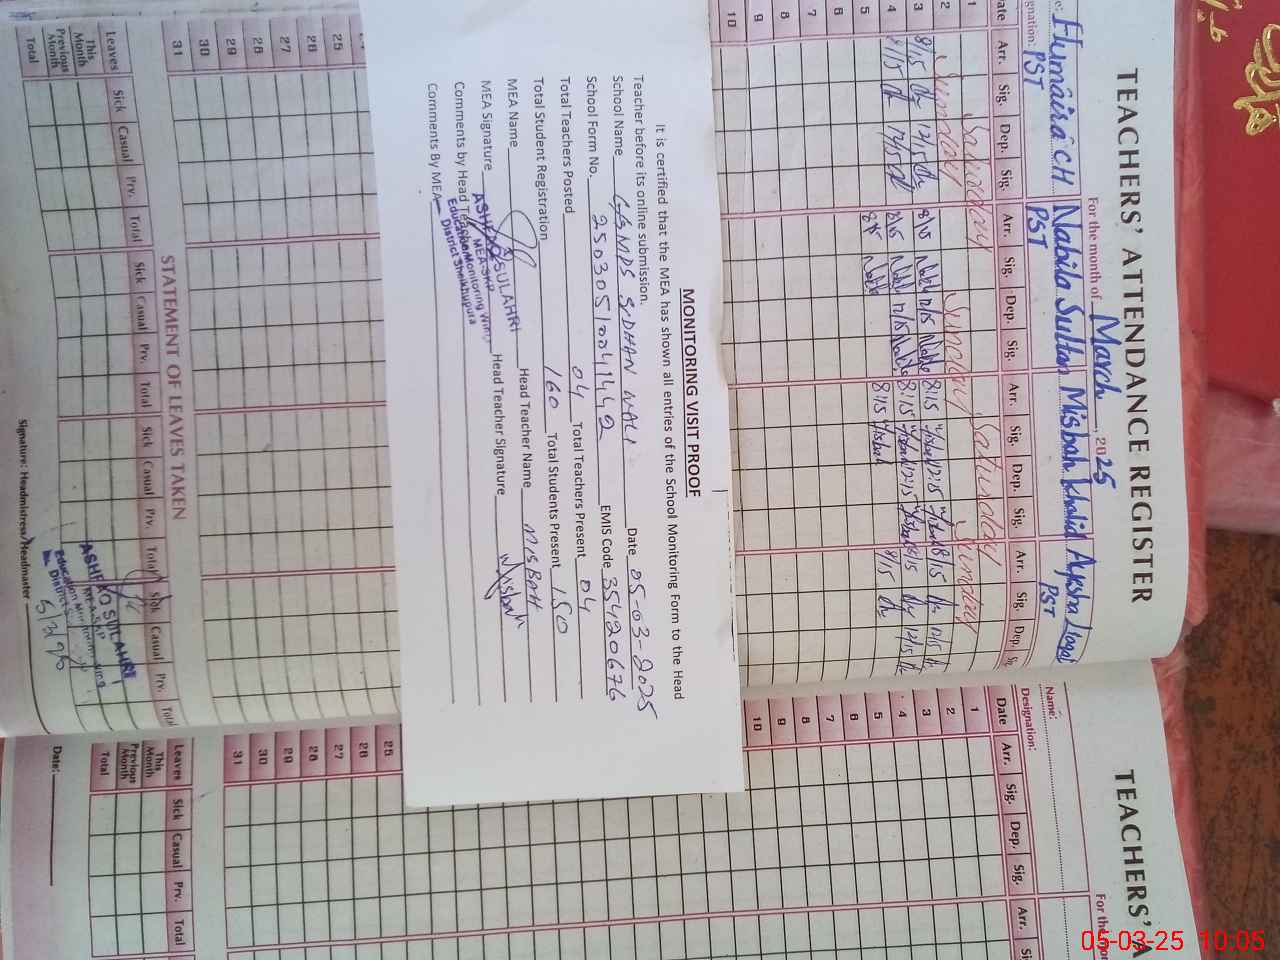 TEACHERS' ATTENDANCE REGISTER
For the month of March, 2025
Humaira CH Nabila Sultan Misbah Khalid Ayesha
Designation: PST PST PST
Date Arr. Sig. Dep. Sig. Arr. Sig. Dep. Sig. Arr. Sig. Dep. Sig. Arr. Sig. Dep.
1 Saturday Saturday
2 Sunday Sunday Sunday
3 8/15 12/15 8/15 12/15 8:15 12:15 8/15 12/15
4 8/15 12/15 8/15 12/15 8:15 12:15 8/15 12/15
5 8:15 8/15
6
7
8
9
10
MONITORING VISIT PROOF
It is certified that the MEA has shown all entries of the School Monitoring Form to the Head
Teacher before its online submission.
School Name GGMPS WALI Date 05-03-2025
School Form No. 25030510041442 EMIS Code 35420676
Total Teachers Posted 04 Total Teachers Present 04
Total Student Registration 160 Total Students Present 150
MEA Name Head Teacher Name MISBAH
MEA Signature Head Teacher Signature Misbah
Comments by Head Teacher
Comments By MEA
ASHFAQ SULAHRI
MEA-SKP
Education Monitoring Wing
District Sheikhupura
25
26
27
28
29
30
31
STATEMENT OF LEAVES TAKEN
Leaves Sick Casual Prv. Total Sick Casual Prv. Total Sick Casual Prv. Total Sick Casual Prv. Total
This Month
Previous Month
Total
ASHFAQ SULAHRI
MEA-SKP
Education Monitoring Wing
Signature: Headmistress/Headmaster
TEACHERS' A
For the
Name:
Designation:
Date Arr. Sig. Dep. Sig. Arr.
1
2
3
4
5
6
7
8
9
10
25
26
27
28
29
30
31
Leaves Sick Casual Prv. Total
This Month
Previous Month
Total
Date:
05-03-25 10:05